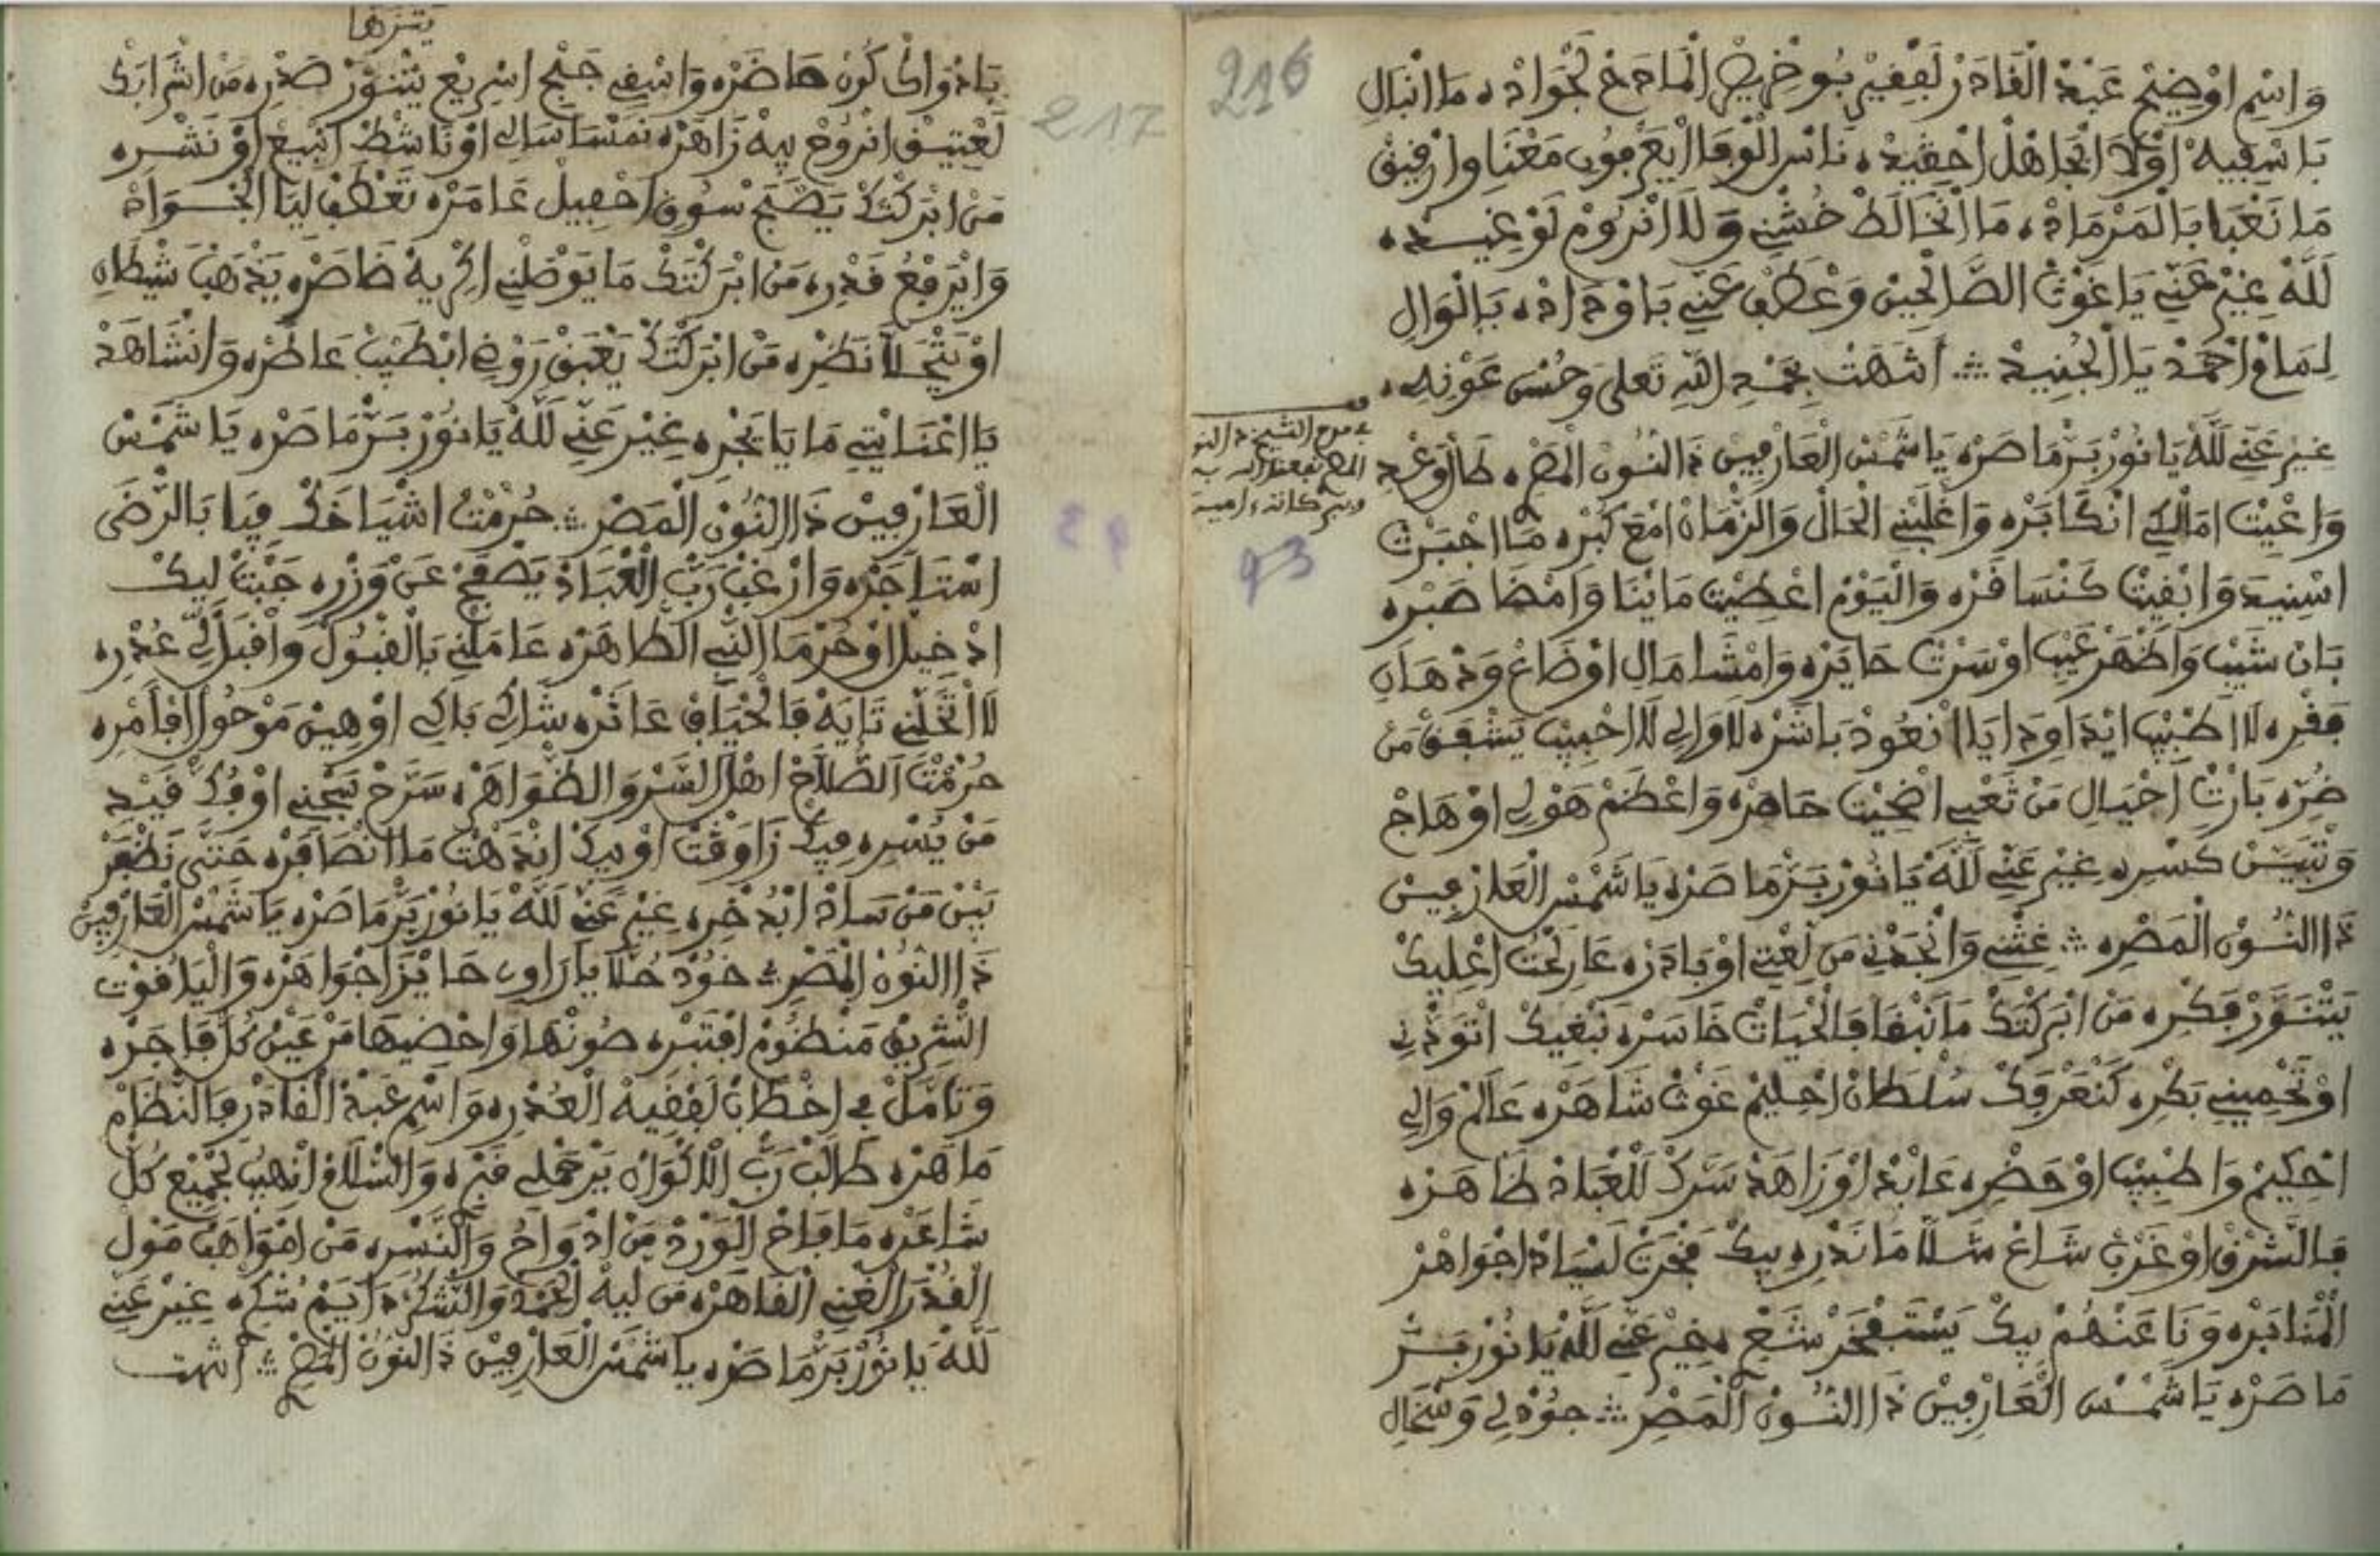 216
وَاسْمِ اوْضِيحْ عَبْدْ الْقَادَرْ لَفْقِيرْ بُوخْرِيصْ الْمَادَحْ لَجْوَادْه مَا انْبَالِ
بَاسْفِيهْ اوْلَا الْجَاهْلْ احْقِيدْه نَاسْ الْوفَا ايْعَرْفُون مَعْنَا وارْفِيق
مَا نَعْبَا بَالْمَرْمَادْه مَا انْخَالَطْ خُشْنِي وَلَا انْرُومْ لَوْغِيدْه
لَلَّهْ غِيرْ عَنِّي يَا غَوْث الصَّالْحِينْ وَعْطَفْ عَنِّي بَاوْدَادْه بَالْوَالِ
لِمَامْ احْمَدْ يَا الْجْنِيدْ ۞ انتهت بِحَمْدِ اللَّهِ تَعلى وَحُسْن عَوْنِه
في مدح الشيخ ذ النو
المصر نفعنا الله به
وببركاته ءامين
93
غِيرْ عَنِّي لَلَّهْ يَا نُورْ بَرّْ مَاصْرَه يَا شَمْسْ الْعَارْفِينْ ذَ النُّون الْمَصْرِ طَالْ وَعْدِ
وَاعْيِيت امَالْكِي انْكَابَرْه وَاغْلَبْنِي الْحَالْ وَالزّْمَانْ امْعَ كَبْرِه مَا اجْبَرْت
اسْنِيدْ وَابْقِيت كَنْسَافَرْه وَالْيَوْمْ اعْصِيت مَا بْنَا وَامْضَا صَبْرِه
بَانْ شَيْبْ وَاظْهَرْ عَيْب اوْسَرْت حَايْرَه وَامْشَا مَالِ اوْضَاعْ وَدْهَانِ
فَقْرِه لَا اطْبِيبْ ايْدَاوِدَايَا انْعُودْ بَاشْرَه لَا وَالِي لَا احْبِيبْ يَشْفَقْ مَنْ
ضُرِّه بَارْتْ احْيَالِ مَنْ تَعْبِي اضْحِيت حَاهْرَه وَاعْظَمْ هَوْلِي اوْهَاجْ
وَتْبَيَّنْ كَسْرِه غِيرْ عَنِّي لَلَّهْ يَا نُورْ بَرّْ مَاصْرَه يَا شَمْسْ الْعَارْفِينْ
ذَا النُّونْ الْمَصْرِه ۞ غِثْنِي وَانْجَدْنِي مَنْ لَعْتِي اوْبَادَرْه عَارِيحْت اعْلِيكْ
يَتْنَوَّرْ فَكْرِه مَنْ ابْرَكْتَكْ مَا نَبْقَا فَالْحْيَاتْ خَاسْرَه نَبْغِيكْ اتْوَدْنِي
اوْتَحْمِينِي بَكْرِه كَنْعَرْفَكْ سُلْطَانْ احْلِيمْ غَوْثْ شَاهْرَه عَالَمْ وَالِي
احْكِيمْ وَاطْبِيبْ اوْحَضْرِه عَابْدْ اوْزَاهَدْ سَرَّكْ لَلْعْبَادْ ظَاهْرَه
فَالشَّرْقْ اوْغَرْبْ شَاعْ شَلَّا مَا نَدْرِه بِيكْ فَخْرَتْ لَسْيَادْ اجْوَاهْرْ
الْمْنَابَرْه وَنَا عَنْهُمْ بِيكْ يَسْتَفْخَرْ شَعْرِ غِيرْ عَنِّي لَلَّهْ يَا نُورْ بَرّْ
مَاصْرَه يَا شَمْسْ الْعَارْفِينْ ذَا النُّونْ الْمَصْرِ ۞ جُودْ لِي وَسْخَالِ
217
يتنزها
بَادْوَاكْ كُونْ حَاضْرَه وَاسْقِي جَبْحْ اسْرِيعْ يَتْنَوَّرْ صَدْرِه مَنْ اشْرَابَكْ
لَعْتِيقْ انْرُوحْ بِيهْ زَاهْرَه نَمْسَا سَالِي اوْنَاشَطْ انْبِيعْ اوْنَشْرِه
مَنْ ابْرَكْتَكْ يَصْبَحْ سُوقْ احْفِيلْ عَامْرَه تَعْطَفْ لِيَا الْجْوَادْ
وَايْرَفْعُ قَدْرِه مَنْ ابْرَكْتَكْ مَا يَوْصَلْنِي اكْرِيهْ خَاصْرَه يَذْهَبْ شَيْطَانِ
اوْيَتْجَلَّا نَظْرِه مَنْ ابْرَكْتَكْ يَعْبَقْ رَوْضِ ابْطِيبْ عَاطْرَه وَانْشَاهَدْ
يَا اعْنَايْتِي مَا يَا يَجْرِه غِيرْ عَنِّي لَلَّهْ يَا نُورْ بَرّْ مَاصْرَه يَا شَمْسْ
الْعَارْفِينْ ذَا النُّونْ الْمَصْرِ ۞ حُرْمْتْ اشْيَاخَكْ فِيَا بَالرّْضَى
اسْتَاجَرْه وَارْغَبْ رَبّْ الْعْبَادْ يَصْفَحْ عَنْ وَزْرِه جَبْتْ لِيكْ
ادْخِيلْ اوْحَرْمَا النّْبِي الطَّاهْرَه عَامَلْنِي بَالْقْبُولْ وَاقْبَلْ لِي عُذْرِه
لَا تْخَلِّنِي تَايَهْ فَالْحْيَافِ عَاثْرَه شَاكِي بَاكِي اوْهِينْ مَوْحُولْ افْأَمْرِه
حُرْمْتْ الصُّلَّاحْ اهْلْ السَّرْ وَالظْوَاهْرَه سَرَّحْ سَجْنِي اوْفُكّْ قَيْدِ
مَنْ يُسْرِه فِيكْ زَاوَقْتْ اوْبِيكْ انْدَهْت مَا انْصَافَرْه حَتَّى نَظْفَرْ
بَيْنْ مَنْ سَادْ ابْدُخْرِه غِيرْ عَنِّي لَلَّهْ يَا نُورْ بَرّْ مَاصْرَه يَا شَمْسْ الْعَارْفِينْ
ذَا النُّونْ الْمَصْرِ ۞ خُودْ حُلَّا يَا رَاوِي حَايْزَا جْوَاهْرَه وَالْيَاقُوتْ
الشّْرِيقْ مَنْظُومْ افْتَبْرِه صُونْهَا وَاحْضِيهَا مَنْ عَيْنْ كُلّْ فَاجْرَه
وَتَامَّلْ فِي اخْطَابْ لَفْقِيهْ الْعُذْرِه وَاسْمِ عَبْدْ الْقَادَرْ فَالنّْظَامْ
مَاهْرَه طَالَبْ رَبّْ الْاَكْوَانْ يَرْحَمْ لِي قَبْرِه وَالسّْلَامْ انْهِيبُ لَجْمِيعْ كُلّْ
شَاعْرَه مَا فَاحْ الْوَرْدْ مَنْ ادْوَاحُ وَالنَّسْرِه مَنْ امْوَاهَبْ مُولْ
الْقُدْرَا الْغْنِي الْقَاهْرَه مَنْ لِيهْ الْحَمْدْ وَالشُّكُرْ دَايَمْ شُكْرِه غِيرْ عَنِّي
لَلَّهْ يَا نُورْ بَرّْ مَاصْرَه يا شَمْسْ الْعَارْفِينْ ذَ النُّونْ الْمَصْرِ ۞ انتهت